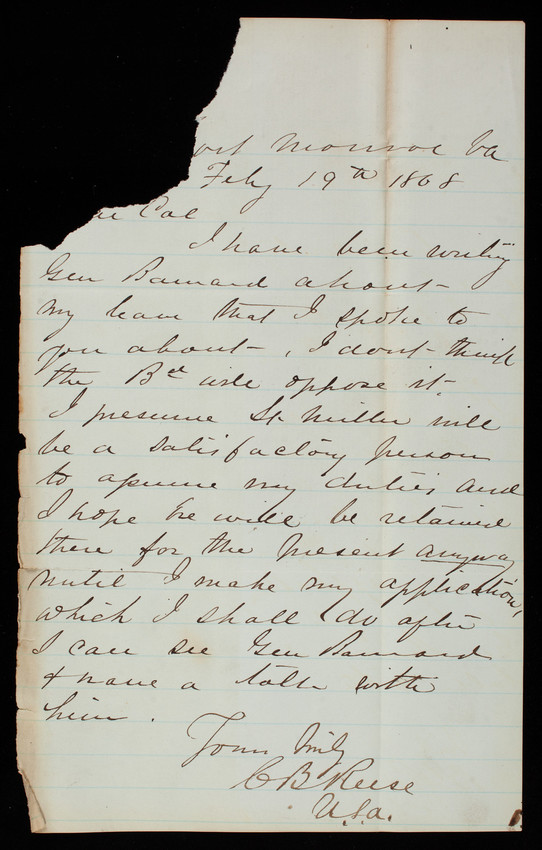 ort Monroe Va
Feby 19th 1868
Col
I have been writing
Gen Barnard about
my leave that I spoke to
you about, I dont think
the Bd will oppose it,
I presume Lt Miller will
be a satisfactory person
to assume my duties and
I hope he will be retained
there for the present anyway
until I make my application,
which I shall do after
I can see Gen Barnard
& have a talk with
him.
Yours Truly
C B Reese
U.S.A.